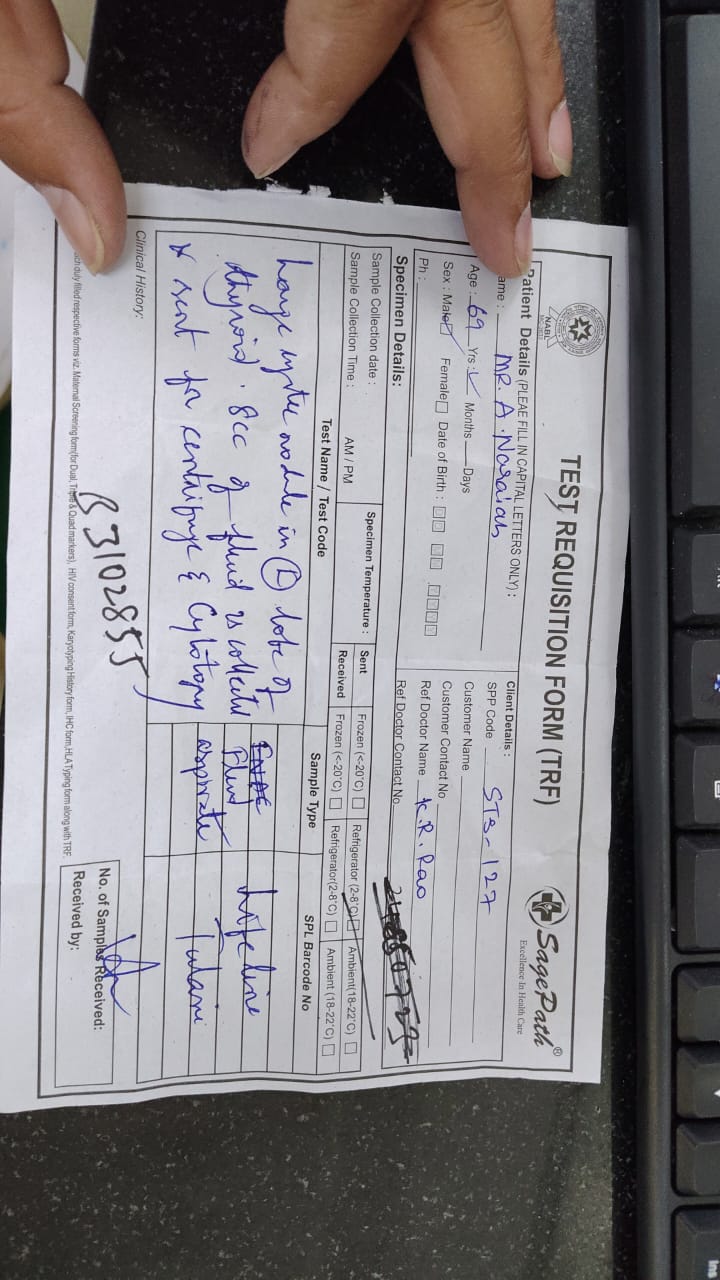 NABL
TEST REQUISITION FORM (TRF)
SagePath®
Excellence In Health Care
Patient Details (PLEAE FILL IN CAPITAL LETTERS ONLY) :
ame : MR. A. Naraiah
Age : 69 Yrs : Months Days
Sex : Male Female Date of Birth :
Ph :
Client Details :
SPP Code STS-127
Customer Name
Customer Contact No
Ref Doctor Name K.R. Rao
Ref Doctor Contact No
Specimen Details:
Sample Collection date :
Sample Collection Time : AM / PM
Specimen Temperature :
Sent Frozen (<-20°C) Refrigerator (2-8°C) Ambient(18-22°C)
Received Frozen (<-20°C) Refrigerator(2-8°C) Ambient (18-22°C)
Test Name / Test Code Sample Type SPL Barcode No
Large cystic nodule in (L) lobe of
thyroid. 8cc of fluid is collected
& sent for centrifuge & Cytology
FNAC
Fluid
aspirate
Life line
Tulasi
Clinical History:
B3102855
No. of Samples Received:
Received by:
ach duly filled respective forms viz. Maternal Screening form(for Dual, Triple & Quad markers), HIV consent form, Karyotyping History form, IHC form, HLA Typing form along with TRF.